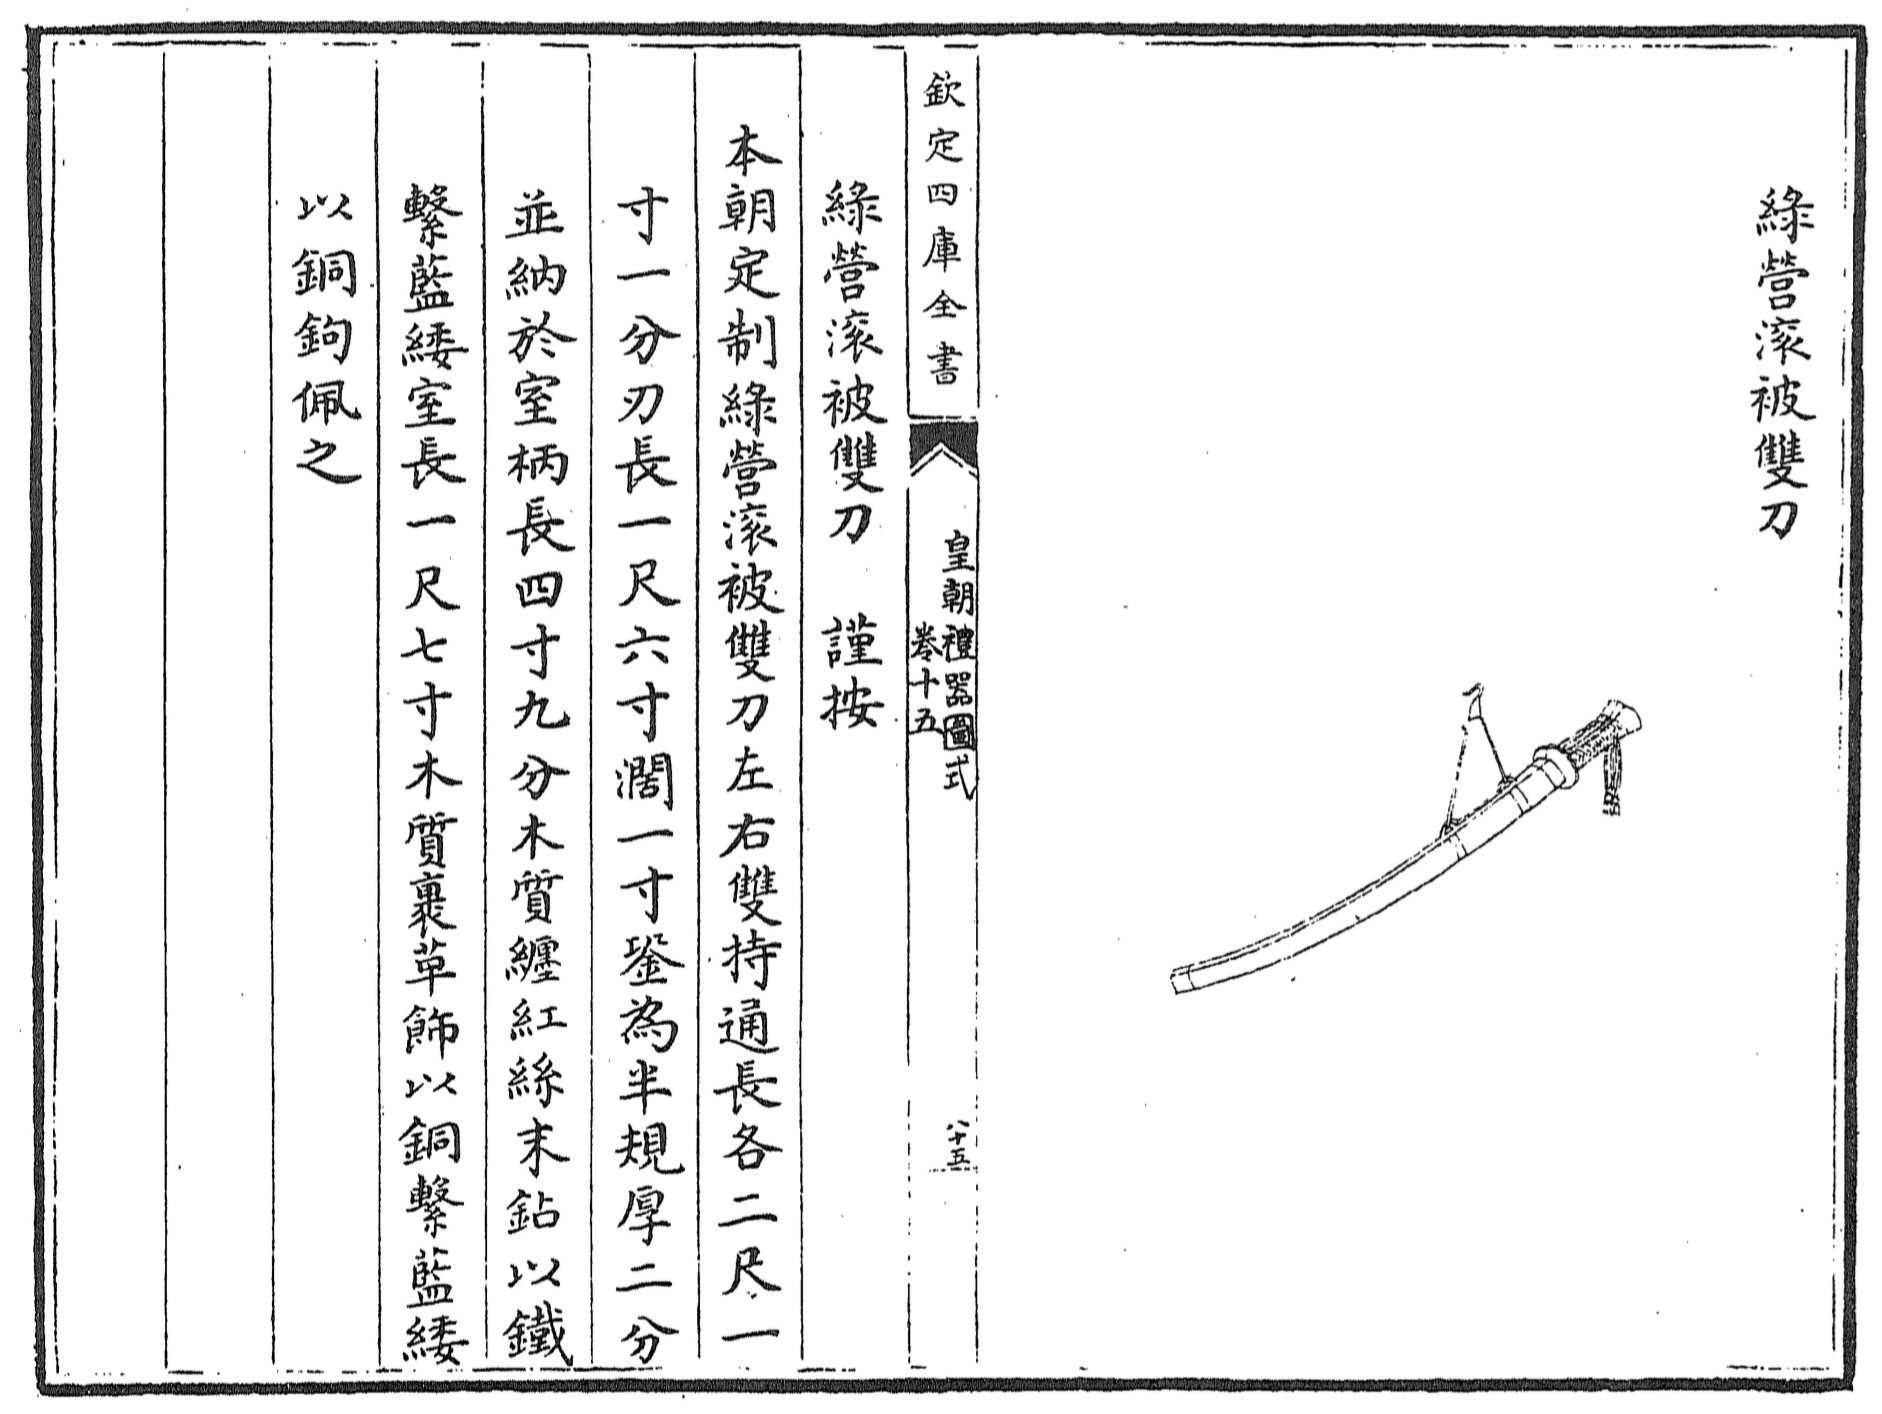 綠營滚被雙刀
欽定四庫全書
皇朝禮器圖式
卷十五
八十五
綠營滚被雙刀 謹按
本朝定制綠營滚被雙刀左右雙持通長各二尺一
寸一分刃長一尺六寸濶一寸銎為半規厚二分
並納於室柄長四寸九分木質纏紅絲末鉆以鐵
繫藍緌室長一尺七寸木質裹革飾以銅繫藍緌
以銅鉤佩之